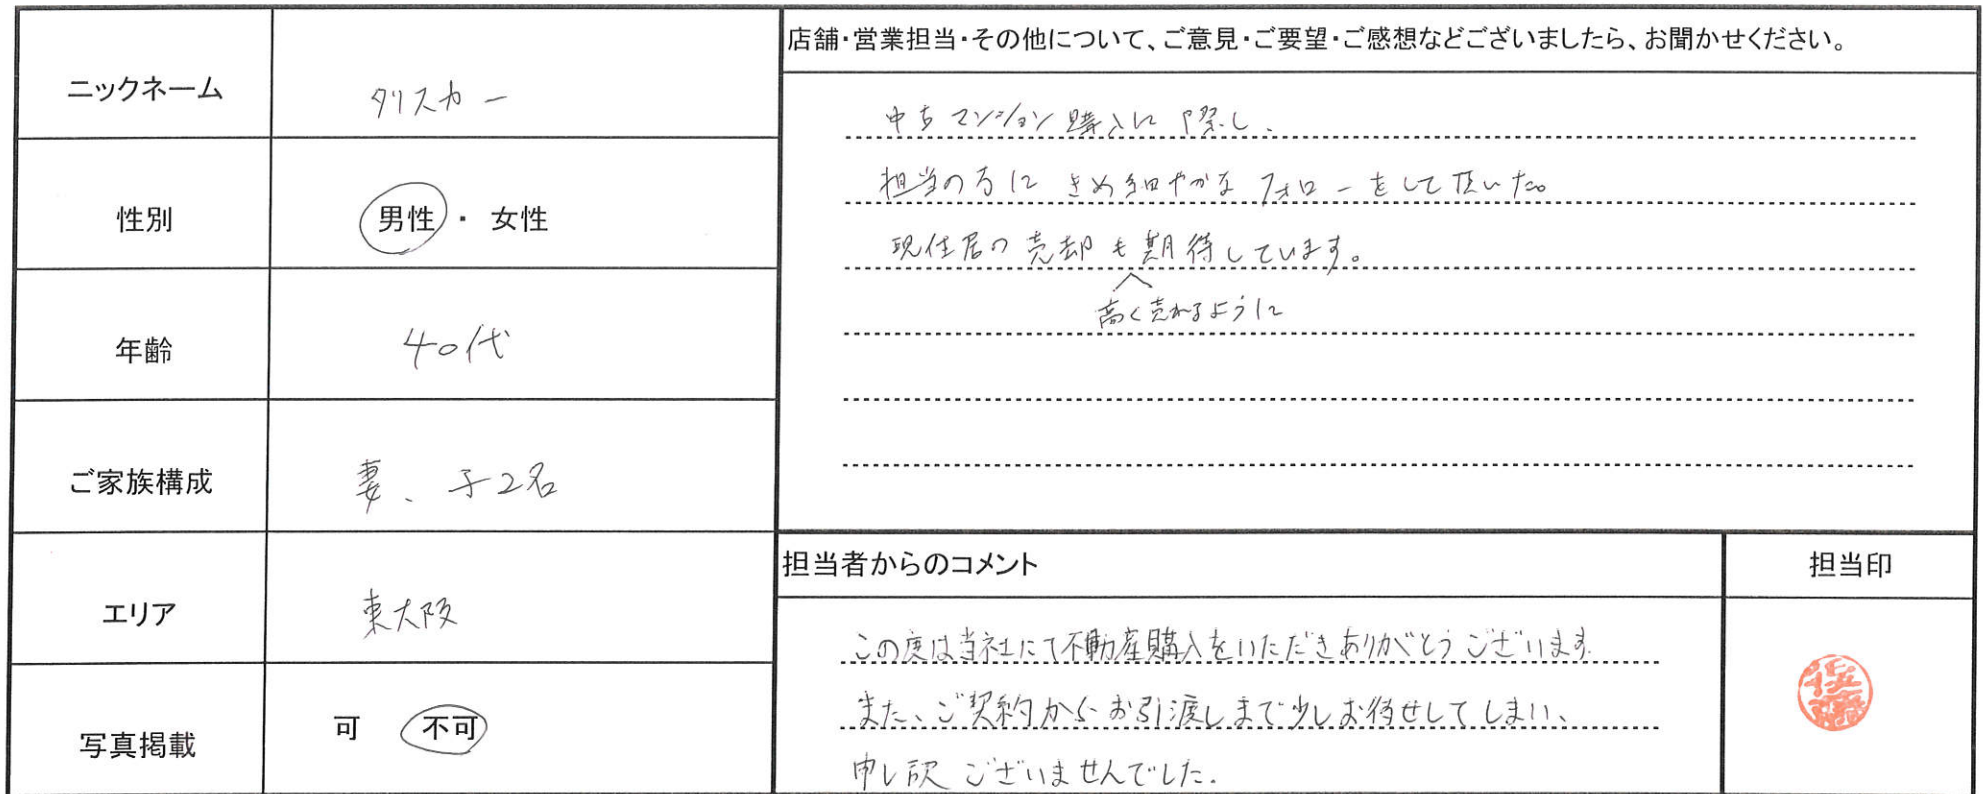 ニックネーム
タリスカー
性別
男性・女性
年齢
40代
ご家族構成
妻、子2名
エリア
東大阪
写真掲載
可 不可
店舗・営業担当・その他について、ご意見・ご要望・ご感想などございましたら、お聞かせください。
中古マンション購入に際し、
担当の方にきめ細やかなフォローをして頂いた。
現住居の売却も期待しています。
高く売れるように
担当者からのコメント
この度は当社にて不動産購入をいただきありがとうございます
また、ご契約からお引渡しまで少しお待せしてしまい、
申し訳ございませんでした。
担当印